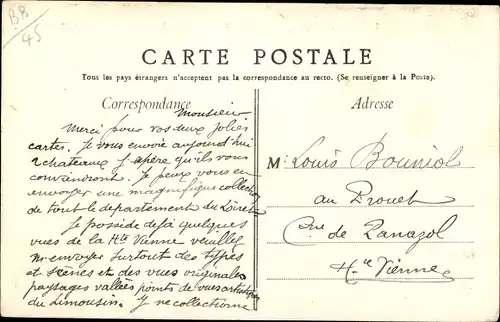 BB
45
CARTE POSTALE
Tous les pays étrangers n'acceptent pas la correspondance au recto. (Se renseigner à la Poste).
Correspondance
Adresse
Monsieur
Merci pour vos deux jolies
cartes. Je vous envoie aujourd'hui
2 chateaux j'espère qu'ils vous
conviendront. Je peux vous en
envoyer une magnifique collection
de tout le departement du Loiret
Je possède déjà quelques
vues de la Hte Vienne veuillez
m'envoyer surtout des types
et scènes et des vues originales
paysages vallées points de vues artistiques
du Limousin. J ne collectionne
M. Louis Bouniol
au Prouet
Cne de Panazol
Hte Vienne